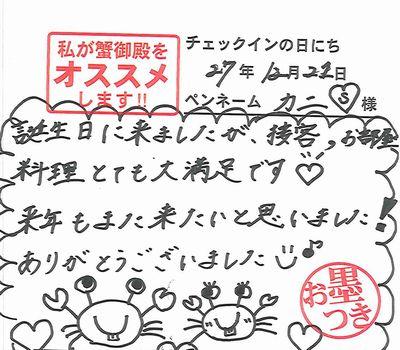 私が蟹御殿を
オススメ
します!!
チェックインの日にち
27年12月22日
ペンネーム カニS様
誕生日に来ましたが、接客、お部屋
料理とても大満足です♡
来年もまた来たいと思いました!
ありがとうございました♪
お墨つき